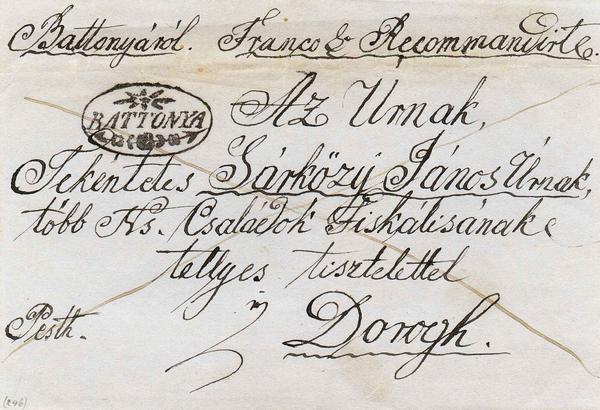 Battonyáról. Franco & Recommandirte.
BATTONYA
Az Urnak,
Tekéntetes Sárközÿ János Úrnak,
több Ns. Családok Fiskálisának
tellyes tisztelettel
Pesth.
Dorogh.
(246)